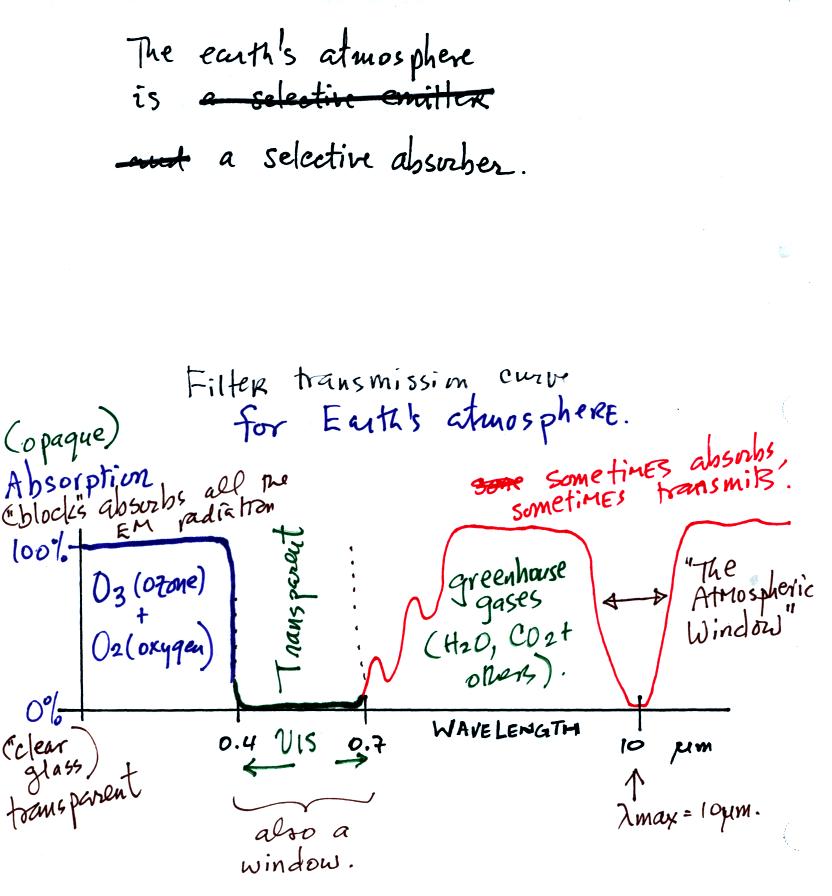 The earth's atmosphere
is a selective emitter
and a selective absorber.
Filter transmission curve
for Earth's atmosphere.
(opaque)
Absorption
"blocks" absorbs all the
EM radiation
some sometimes absorbs,
sometimes transmits.
100%
O3 (ozone)
+
O2 (oxygen)
Transparent
greenhouse
gases
(H2O, CO2 +
others).
"The
Atmospheric
Window"
0%
("clear
glass")
transparent
0.4 VIS 0.7
WAVELENGTH
10 μm
λmax = 10μm.
also a
window.